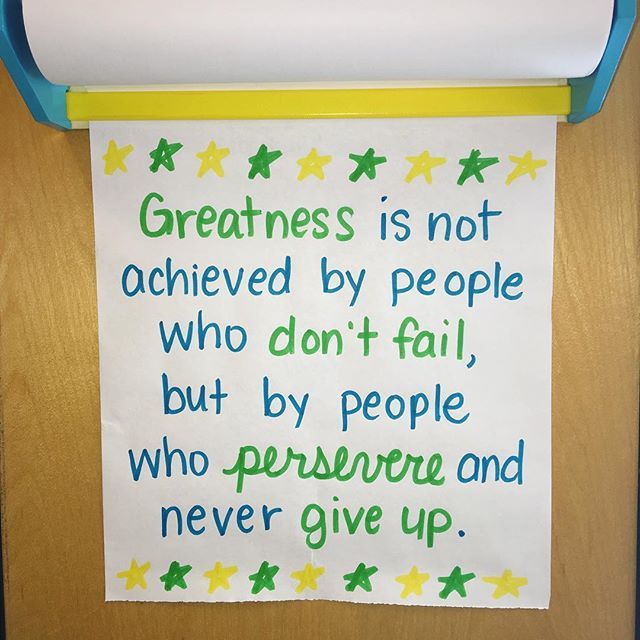 Greatness is not
achieved by people
who don't fail,
but by people
who persevere and
never give up.